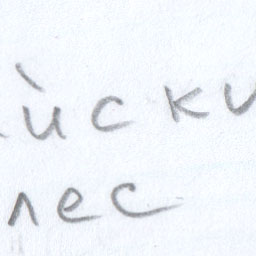 йски
лес